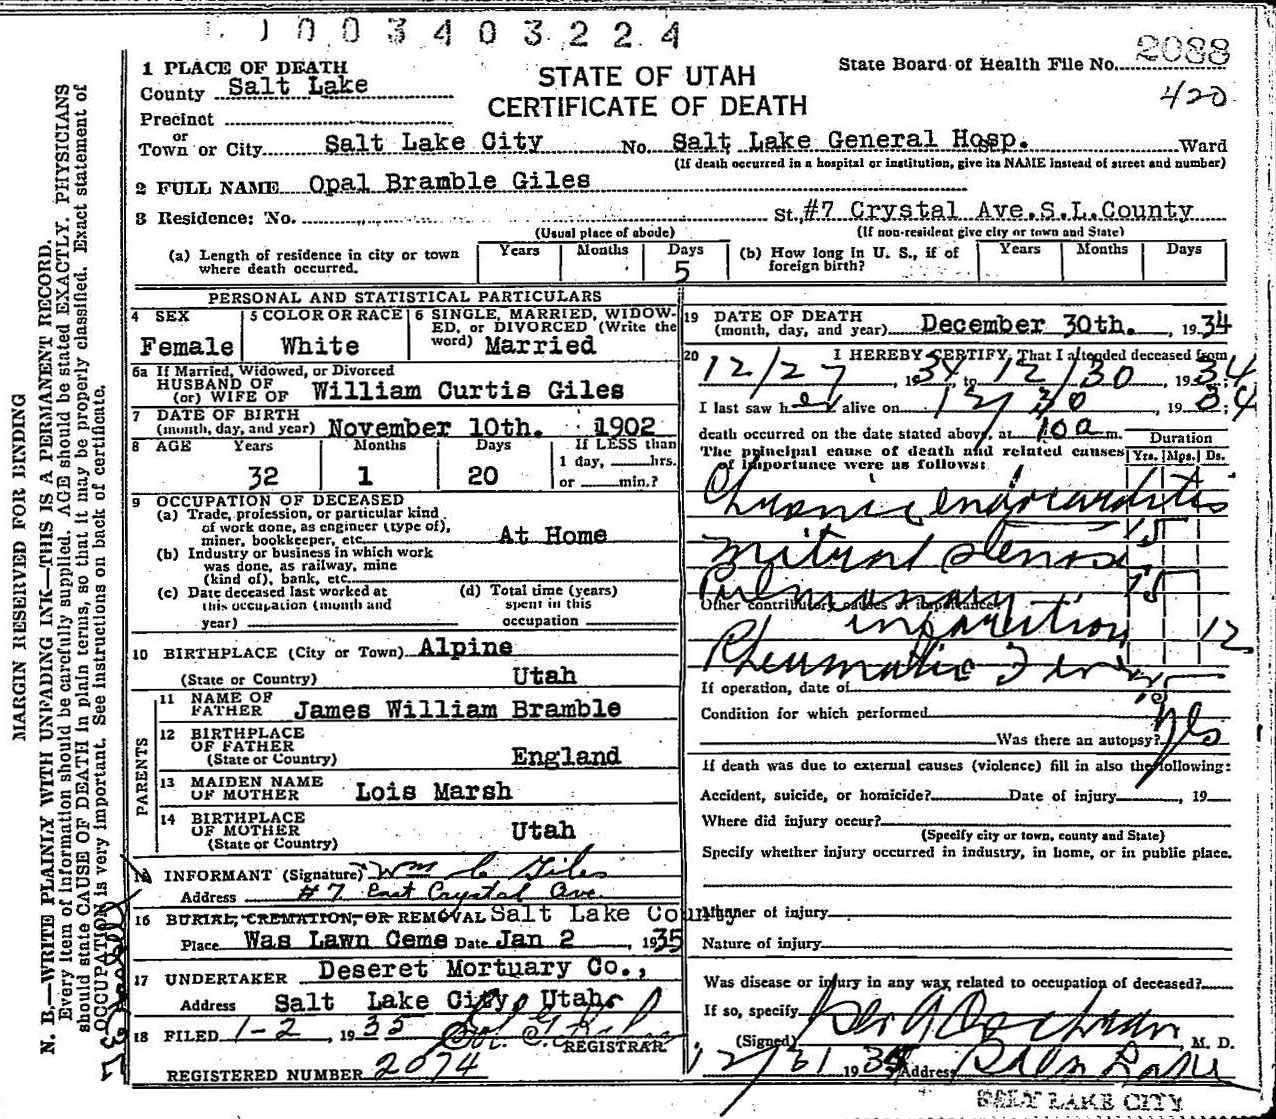 1003403224
1 PLACE OF DEATH
STATE OF UTAH
CERTIFICATE OF DEATH
State Board of Health File No. 2088
420
County Salt Lake
Precinct
or
Town or City Salt Lake City No. Salt Lake General Hosp. Ward
(If death occurred in a hospital or institution, give its NAME instead of street and number)
2 FULL NAME Opal Bramble Giles
3 Residence: No. St., #7 Crystal Ave.S.L.County
(Usual place of abode) (If non-resident give city or town and State)
(a) Length of residence in city or town where death occurred. Years Months Days 5
(b) How long in U. S., if of foreign birth? Years Months Days
PERSONAL AND STATISTICAL PARTICULARS
4 SEX Female
5 COLOR OR RACE White
6 SINGLE, MARRIED, WIDOWED, or DIVORCED (Write the word) Married
6a If Married, Widowed, or Divorced
HUSBAND OF
(or) WIFE OF William Curtis Giles
7 DATE OF BIRTH
(month, day, and year) November 10th. 1902
8 AGE Years Months Days If LESS than
32 1 20 1 day, hrs.
or min.?
9 OCCUPATION OF DECEASED
(a) Trade, profession, or particular kind
of work done, as engineer (type of),
miner, bookkeeper, etc. At Home
(b) Industry or business in which work
was done, as railway, mine
(kind of), bank, etc.
(c) Date deceased last worked at
this occupation (month and
year)
(d) Total time (years)
spent in this
occupation
10 BIRTHPLACE (City or Town) Alpine
(State or Country) Utah
PARENTS
11 NAME OF
FATHER James William Bramble
12 BIRTHPLACE
OF FATHER
(State or Country) England
13 MAIDEN NAME
OF MOTHER Lois Marsh
14 BIRTHPLACE
OF MOTHER Utah
(State or Country)
INFORMANT (Signature) Wm C Giles
Address #7 East Crystal Ave.
16 BURIAL, CREMATION, OR REMOVAL Salt Lake County
Place Was Lawn Ceme Date Jan 2, 1935
17 UNDERTAKER Deseret Mortuary Co.,
Address Salt Lake City, Utah
18 FILED 1-2, 1935
REGISTRAR
REGISTERED NUMBER 2074
19 DATE OF DEATH
(month, day, and year) December 30th., 1934
20 I HEREBY CERTIFY, That I attended deceased from
12/27, 1934, to 12/30, 1934
I last saw her alive on 12/30, 1934;
death occurred on the date stated above, at 10 a m.
The principal cause of death and related causes
of importance were as follows:
Duration
Yrs. Mos. Ds.
Chronic endocarditis
15
mitral stenosis
15
Pulmonary
Other contributory causes of importance:
infarction 12
Rheumatic Fever
15
If operation, date of
Condition for which performed
Was there an autopsy? yes
If death was due to external causes (violence) fill in also the following:
Accident, suicide, or homicide? Date of injury, 19
Where did injury occur?
(Specify city or town, county and State)
Specify whether injury occurred in industry, in home, or in public place.
Manner of injury
Nature of injury
Was disease or injury in any way related to occupation of deceased?
If so, specify
(Signed) M. D.
12/31 1934 Address Salt Lake
SALT LAKE CITY
MARGIN RESERVED FOR BINDING
N. B.—WRITE PLAINLY WITH UNFADING INK—THIS IS A PERMANENT RECORD.
Every item of information should be carefully supplied. AGE should be stated EXACTLY. PHYSICIANS
should state CAUSE OF DEATH in plain terms, so that it may be properly classified. Exact statement of
OCCUPATION is very important. See instructions on back of certificate.